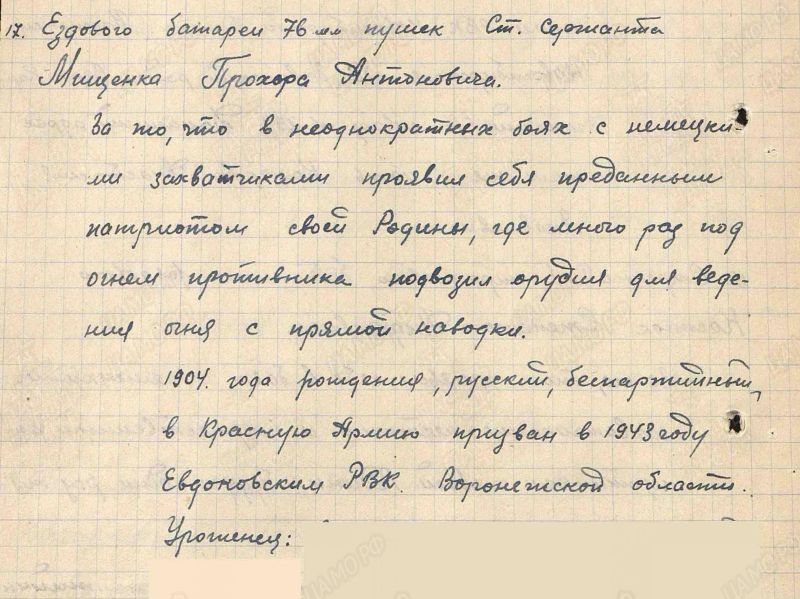 17. Ездового батареи 76 мм пушек Ст. Сержанта
Мищенка Прохора Антоновича.
За то, что в неоднократных боях с немецки-
ми захватчиками проявил себя преданным
патриотом своей Родины, где много раз под
огнем противника подвозил орудия для веде-
ния огня с прямой наводки.
1904. года рождения, русский, беспартийный,
в Красную Армию призван в 1943 году
Евдоновским РВК. Воронежской области.
Уроженец:
ЦАМО РФ